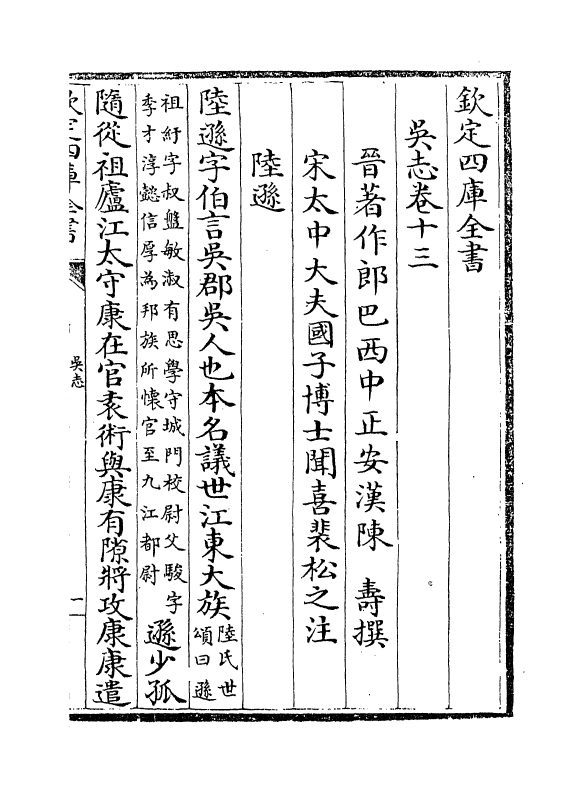 欽定四庫全書
吳志卷十三
晉著作郎巴西中正安漢陳　壽撰
宋太中大夫國子博士聞喜裴松之注
陸遜
陸遜字伯言吳郡吳人也本名議世江東大族
陸氏世
頌曰遜
祖紆字叔盤敏淑有思學守城門校尉父駿字
季才淳懿信厚為邦族所懷官至九江都尉
遜少孤
隨從祖廬江太守康在官袁術與康有隙將攻康康遣
欽定四庫全書
吳志
一